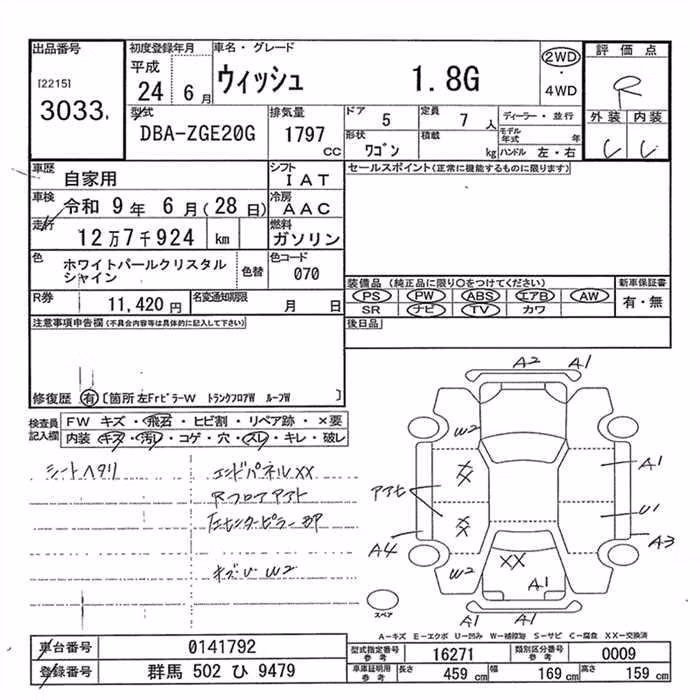 出品番号
[2215]
3033
初度登録年月
平成
24 6月
車名・グレード
ウィッシュ 1.8G
2WD
・
4WD
評価点
R
外装 内装
C C
型式
DBA-ZGE20G
排気量
1797
CC
ドア 5
定員 7人
ディーラー・並行
形状 ワゴン
積載 kg
モデル年式 年
ハンドル 左・右
車歴 自家用
シフト IAT
セールスポイント(正常に機能するものに限ります)
車検 令和 9年 6月(28日)
冷房 AAC
走行 12万7千924 km
燃料 ガソリン
色 ホワイトパールクリスタル
シャイン
色替
色コード 070
装備品(純正品に限り○をつけてください)
PS PW ABS エアB AW
SR ナビ TV カワ
新車保証書
有・無
R券 11,420円
名変通知期限 月 日
後日品
注意事項申告欄(不具合内容等は具体的に記入して下さい)
修復歴 有 [箇所 左FrピラーW トランクフロアW ルーフW ]
検査員
記入欄
FW キズ・飛石・ヒビ割・リペア跡・×要
内装 キズ・汚レ・コゲ・穴・スレ・キレ・破レ
シートヘタリ
エンドパネルXX
Rフロアアト
左センターピラー
W2
A2 A1
W2
XX
A1
アアヒ
XX
U1
A4
A3
W2
XX
A1
A1 A1
スペア
A-キズ E-エクボ U-凹み W-補修跡 S-サビ C-腐食 XX-交換済
車台番号 0141792
登録番号 群馬 502 ひ 9479
型式指定番号
参考
16271
類別区分番号
参考
0009
車庫証明用
参考
長さ 459 cm
幅 169 cm
高さ 159 cm